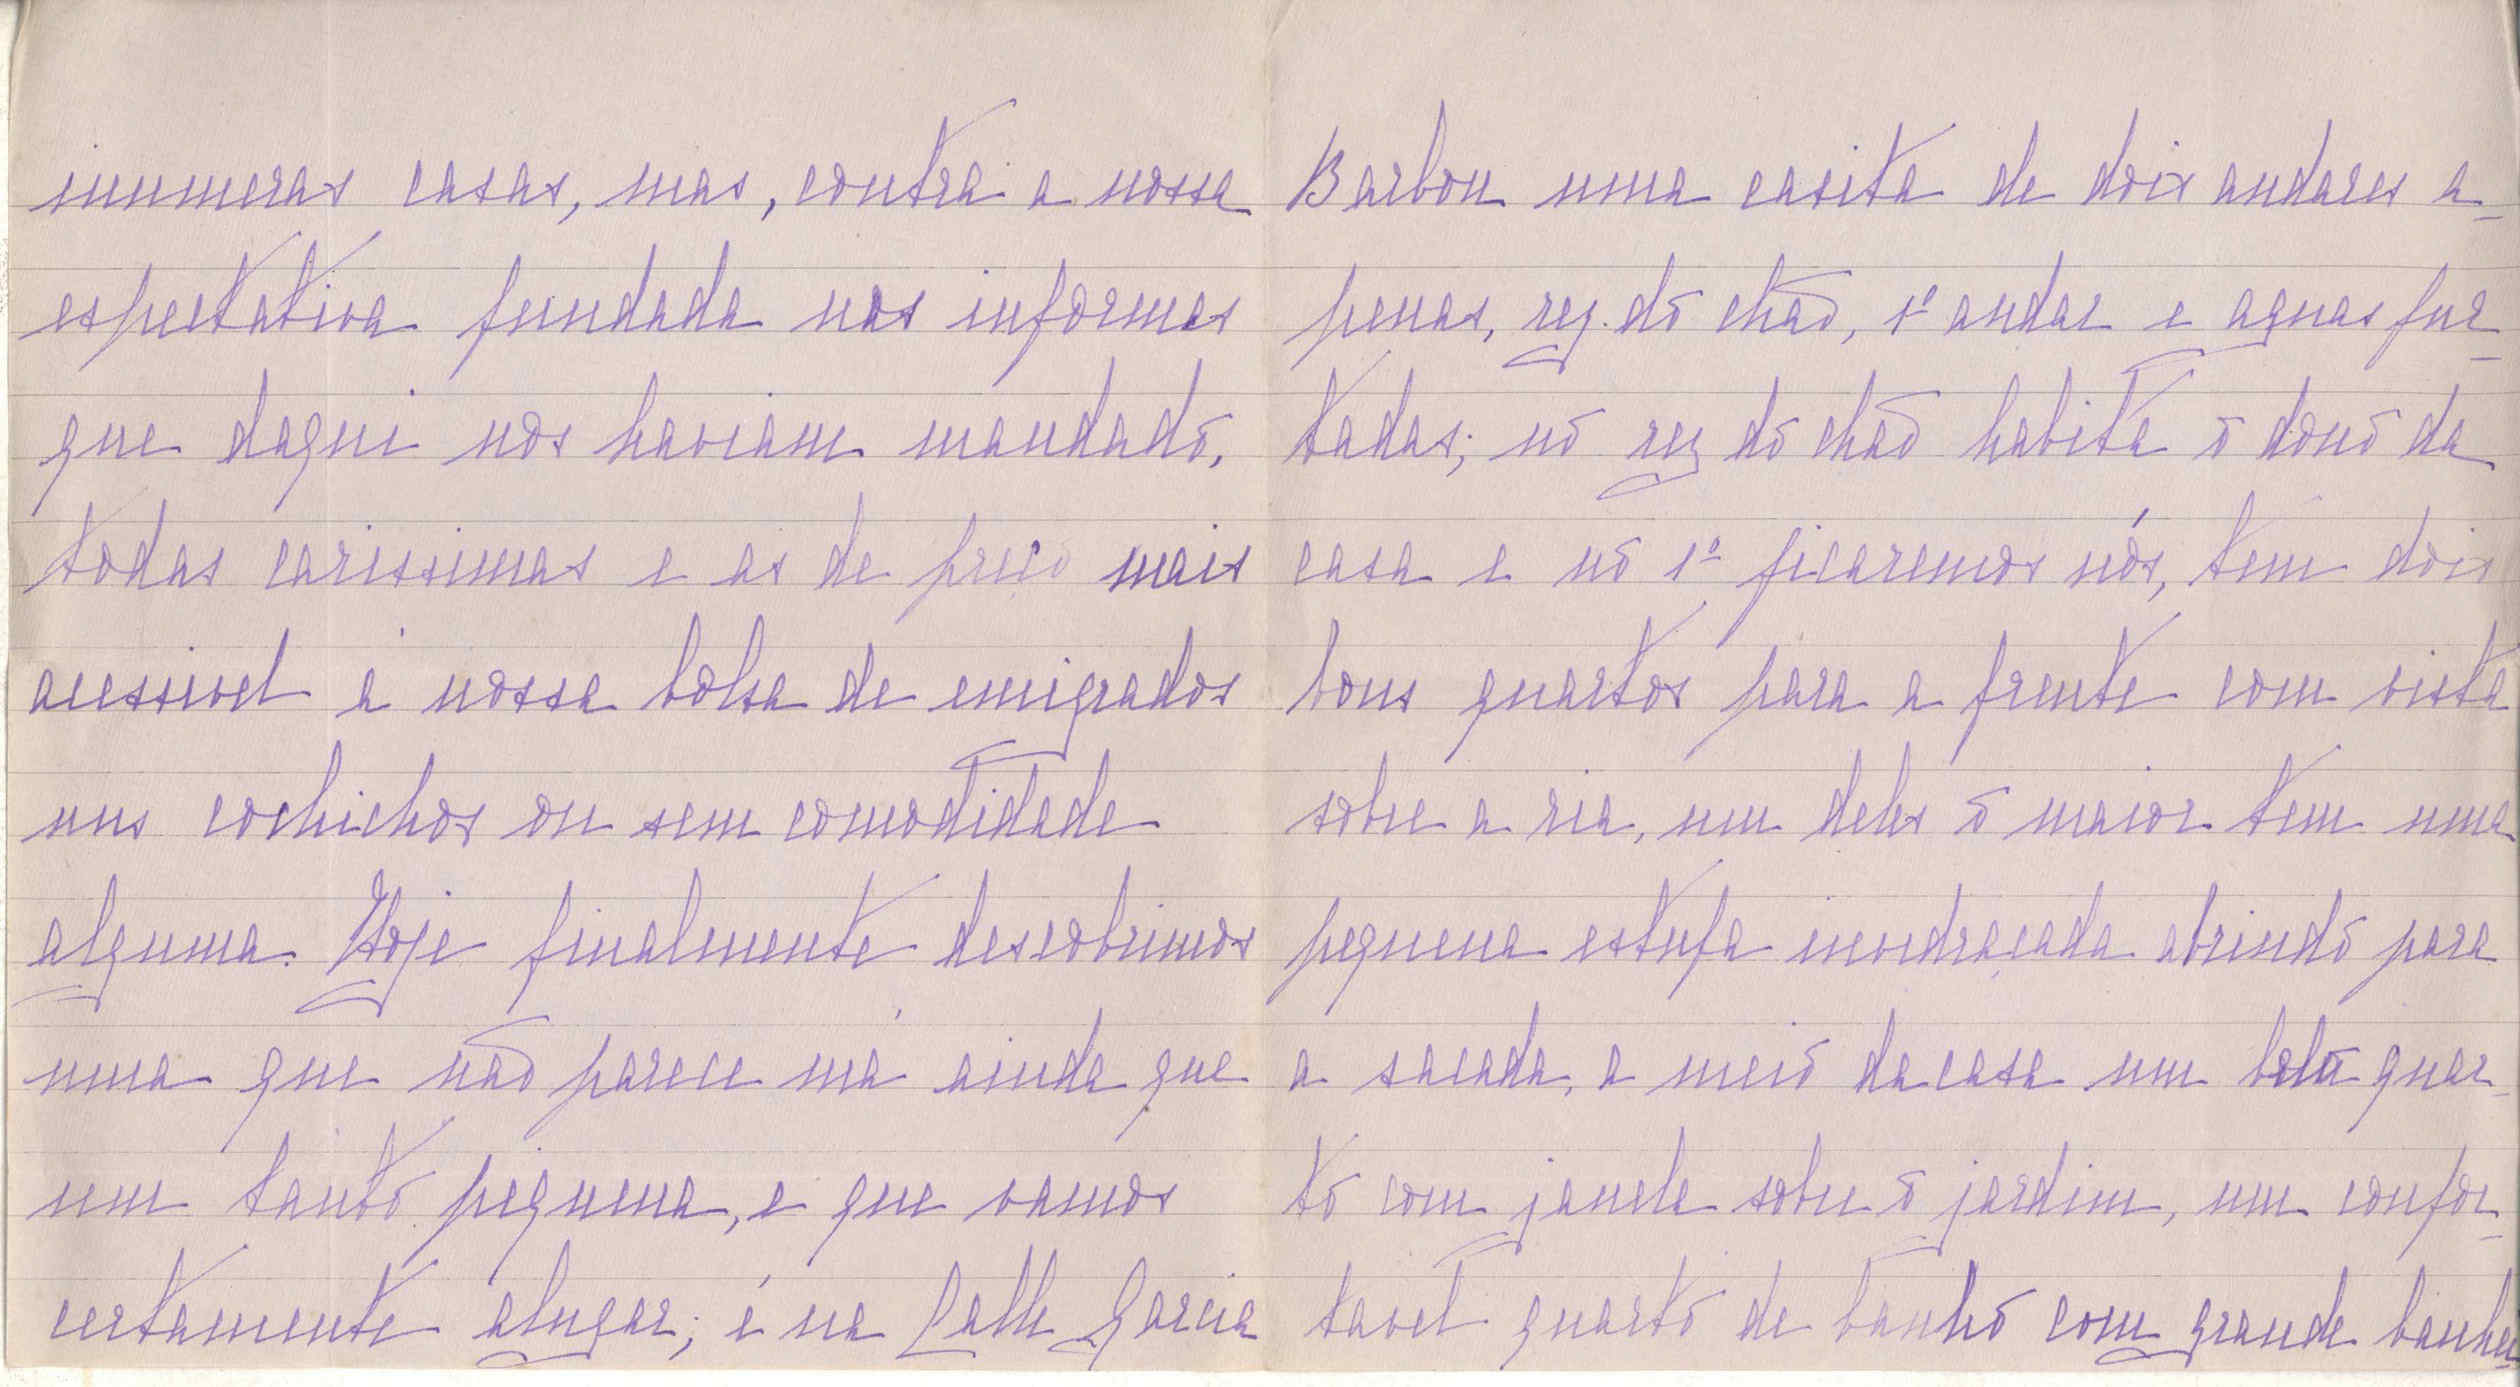 inumeras casas, mas, contra a nossa
espectativa fundada nas informas
que daqui nos haviam mandado,
todas carissimas e as de preço mais
acessivel á nossa bolsa de emigrados
uns cochichos ou sem comodidade
alguma. Hoje finalmente descobrimos
uma que não parece má ainda que
um tanto piquena, e que vamos
certamente alugar; é na Calle Garcia
Barbon uma casita de dois andares a-
penas, rez. do chão, 1º andar e aguas fur-
tadas; no rez do chão habita o dono da
casa e no 1º ficaremos nós, tem dois
bons quartos para a frente com vista
sobre a ria, um deles o maior tem uma
pequena estufa invidraçada abrindo para
a sacada, a meio da casa um belo quar-
to com janela sobre o jardim, um confor-
tavel quarto de banho com grande banhei-